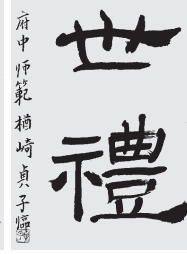 世禮
府中 師範 楢崎貞子臨